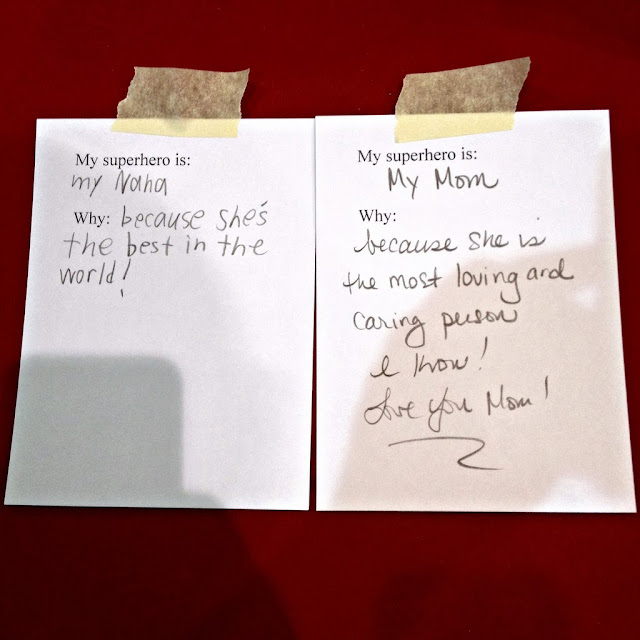 My superhero is:
my Nana
Why: because she's
the best in the
world!
My superhero is:
My Mom
Why:
because she is
the most loving and
caring person
I know!
Love you Mom!